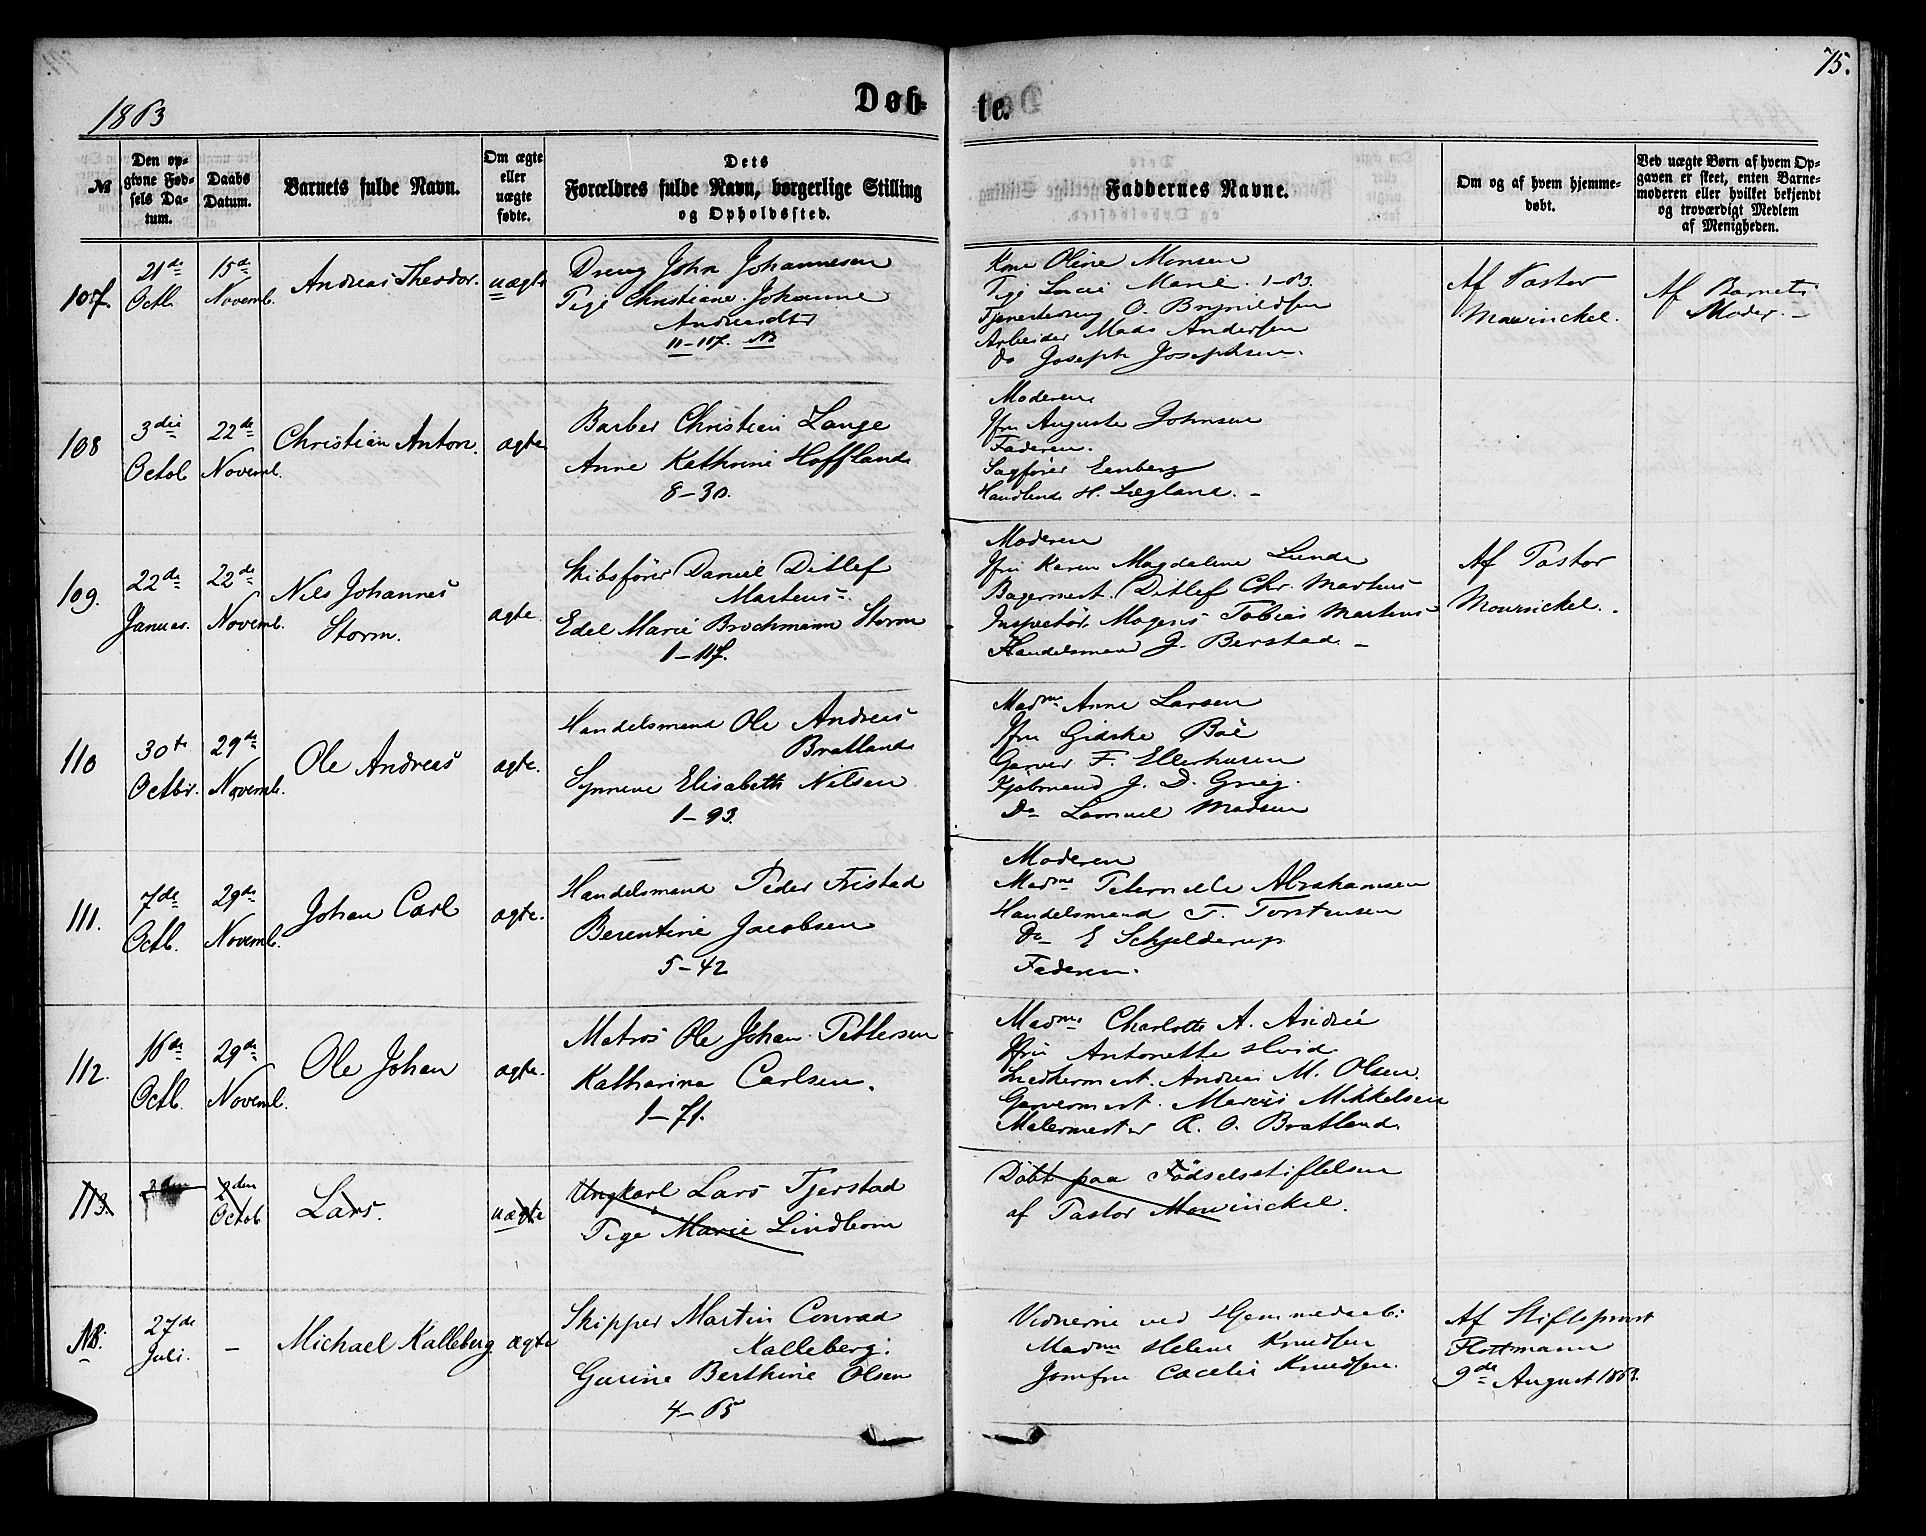 1863
Døb-
te.
75.
№
Den op-
givne Fød-
sels Da-
tum.
Daabs
Datum.
Barnets fulde Navn.
Om ægte
eller
uægte
fødte.
Dets
Forældres fulde Navn, borgerlige Stilling
og Opholdssted.
Faddernes Navne.
Om og af hvem hjemme-
døbt.
Ved uægte Børn af hvem Op-
gaven er skeet, enten Barne-
moderen eller hvilket bekjendt
og troværdigt Medlem
af Menigheden.
107.
21de
Octb.
15de
Novemb.
Andreas Theodor.
uægte
Dreng John Johannesen
Pige Christiane Johanne
Andreasdtr
11-117. NB
Kone Oline Monsen
Pige Marie. 1-83.
Tjenestedreng O. Brynildsen
Arbeider Mads Andersen
do Joseph Josephsen.
Af Pastor
Mowinckel.
Af Barnets
Moder. -
108
3die
Octob
22de
Novemb.
Christian Anton.
ægte
Barber Christian Lange
Anne Kathrine Hoffland
8-30.
Moderen
Jfru Auguste Johnsen
Faderen.
Sagfører Eenberg
Handlende H. Lægland. -
109.
22de
Januar.
22de
Novemb.
Nils Johannes
Storm.
ægte.
Skibsfører Daniel Ditlef
Martens.
Edel Marie Brochmann Storm
1-117.
Moderen
Jfru Karen Magdalene Lunde
Bagermest. Ditlef Chr. Martens
Inspectør Mogens Tobias Martens
Handelsmand J. Berstad. -
Af Pastor
Mowinckel.
110
30te
Octbr.
29de
Novemb.
Ole Andreas
ægte.
Handelsmand Ole Andreas
Bratland
Synneve Elisabeth Nilsen
1-93.
Madme Anne Larsen
Jfru Gidske Böe
Garver F. Ellerhusen
Kjøbmand J. D. Grieg.
Do Samuel Madsen
111.
7de
Octb.
29de
Novemb.
Johan Carl
ægte.
Handelsmand Peder Fristad
Berentine Jacobsen
5-42
Moderen
Madme Peternelle Abrahamsen
Handelsmand T. Torstensen
Do E Schjelderup
Faderen.
112.
16de
Octb.
29de
Novemb.
Ole Johan
ægte.
Matros Ole Johan Pettersen
Katharina Carlsen.
1-71.
Madme Charlotte A. Andrée
Jfru Antonette Hvid.
Snedkermest. Andreas M. Olsen.
Garvermest. Marcus Mikkelsen
Malermester R. O. Bratland.
113.
2den
Octob
Lars.
uægte
Ungkarl Lars Tjerstad
Pige Marie Lindbom
Döbt paa Födselsstiftelsen
af Pastor Mowinckel.
NB.
27de
Juli.
-
Michael Kalleberg
ægte
Skipper Martin Conrad
Kalleberg.
Gurine Berthine Olsen
4-65
Vidnerne ved Hjemmedaab:
Madme Helene Knudsen
Jomfru Cæcelie Knudsen.
Af Stiftsprovst
Flottmann
9de August 1863.